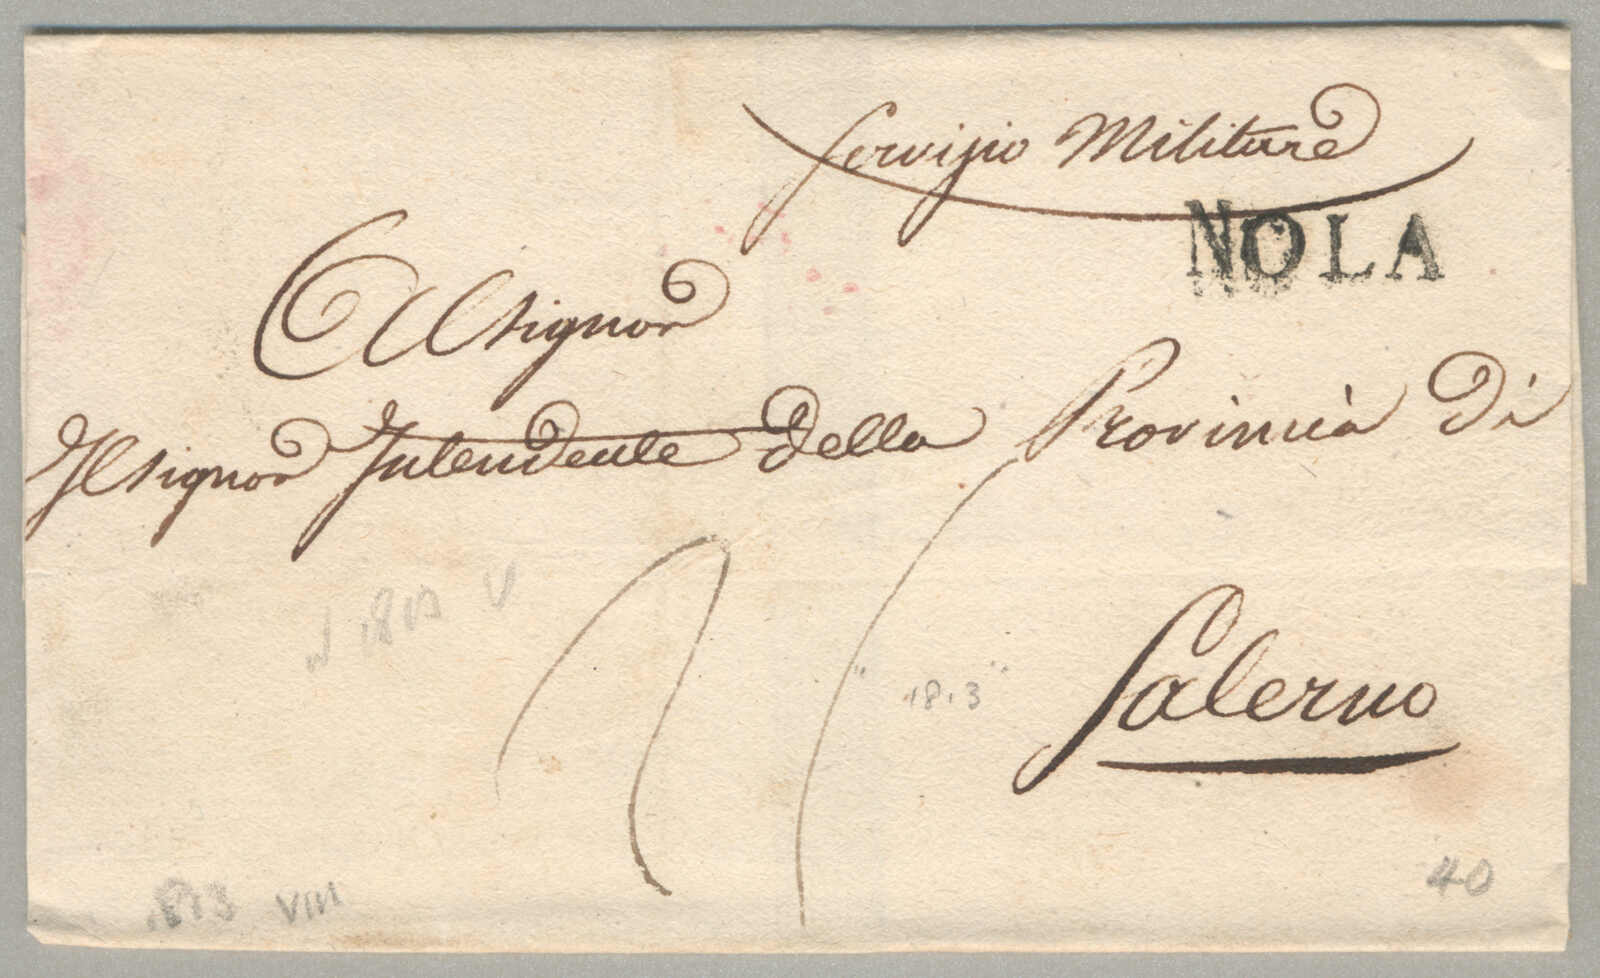 Servizio Militare
NOLA
Al Signor
Il Signor Intendente della Provincia di
Salerno
1813 V
"1813"
1813 VIII
40